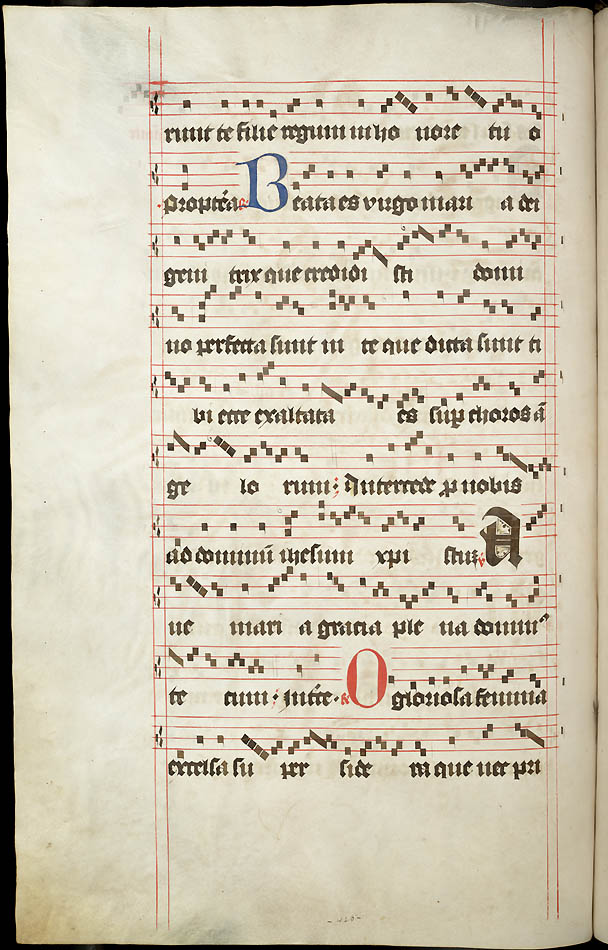 runt te filie regum in ho nore tu o
propt̄ea Beata es virgo mari a dei
geni trix que credidi sti domi
no perfecta sunt in te que dicta sunt ti
bi ecce exaltata es sup choros ā
ge lo rum Intercede p nobis
ad dominū ihesum xpi stū A
ue mari a gracia ple na domin⁹
te cum Int̄e O gloriosa femina
excelsa su per side ra que uec pri